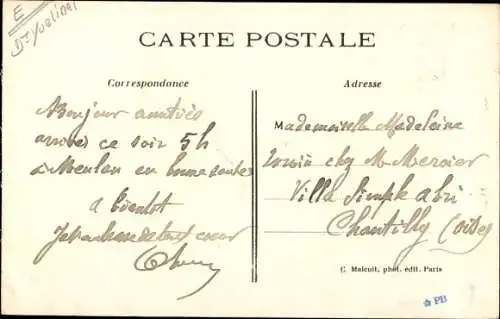 E
Dt Yvelines
CARTE POSTALE
Correspondance
Bonjour amitiés
arrivés ce soir 5h
à Meulan en bonne santé
à bientôt
Je de tout cœur
Adresse
Mademoiselle Madeleine
chez M Mercier
Villa Simple abri
Chantilly (Oise)
C. Maleuit, phot. édit. Paris
PB